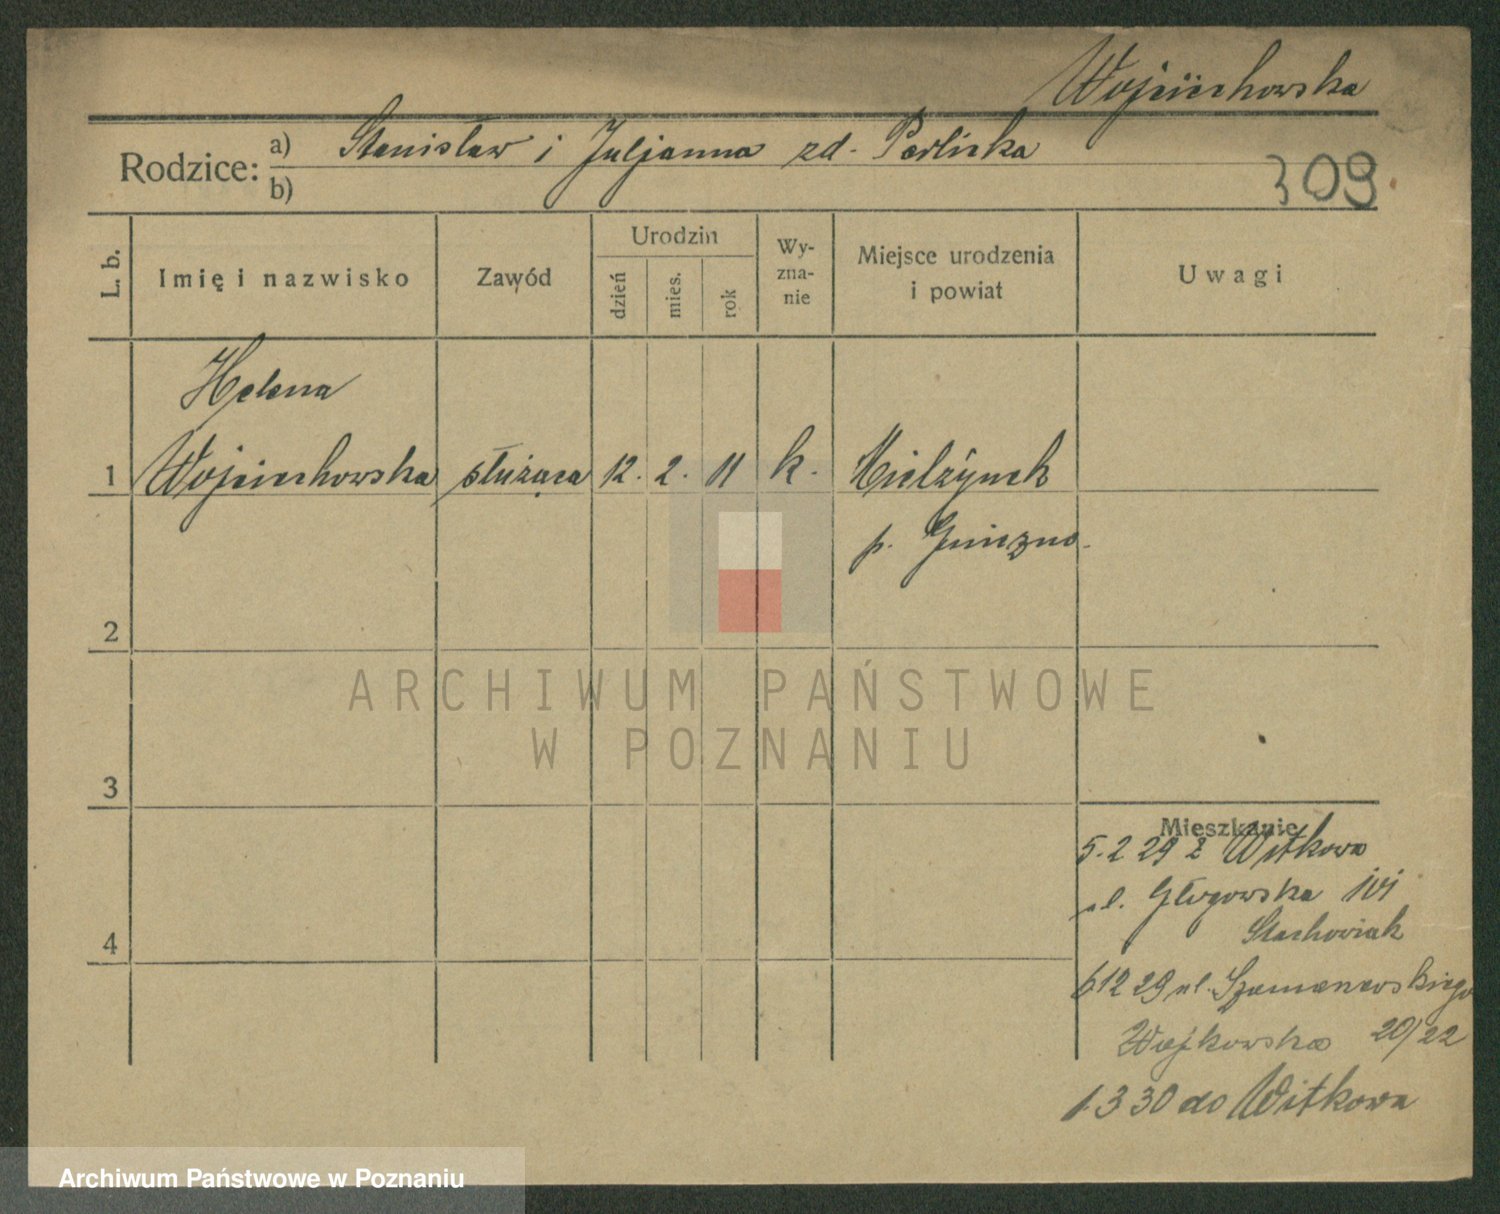 Wojciechowska
Rodzice: a) Stanisław i Juljanna zd. Perlicka
b)
309
L. b.
Imię i nazwisko
Zawód
Urodzin
dzień
mies.
rok
Wy-
zna-
nie
Miejsce urodzenia
i powiat
Uwagi
Helena
1 Wojciechowska służąca 12. 2. 11 k. Mielżynek
p. Gniezno.
2
ARCHIWUM PAŃSTWOWE
W POZNANIU
3
Mieszkanie
5.2 29 z Witkowa
ul. Głogowska 101
Stachowiak
4
6 12 29 ul. Szamarzewskiego
20/22
1.3 30 do Witkowa
Archiwum Państwowe w Poznaniu